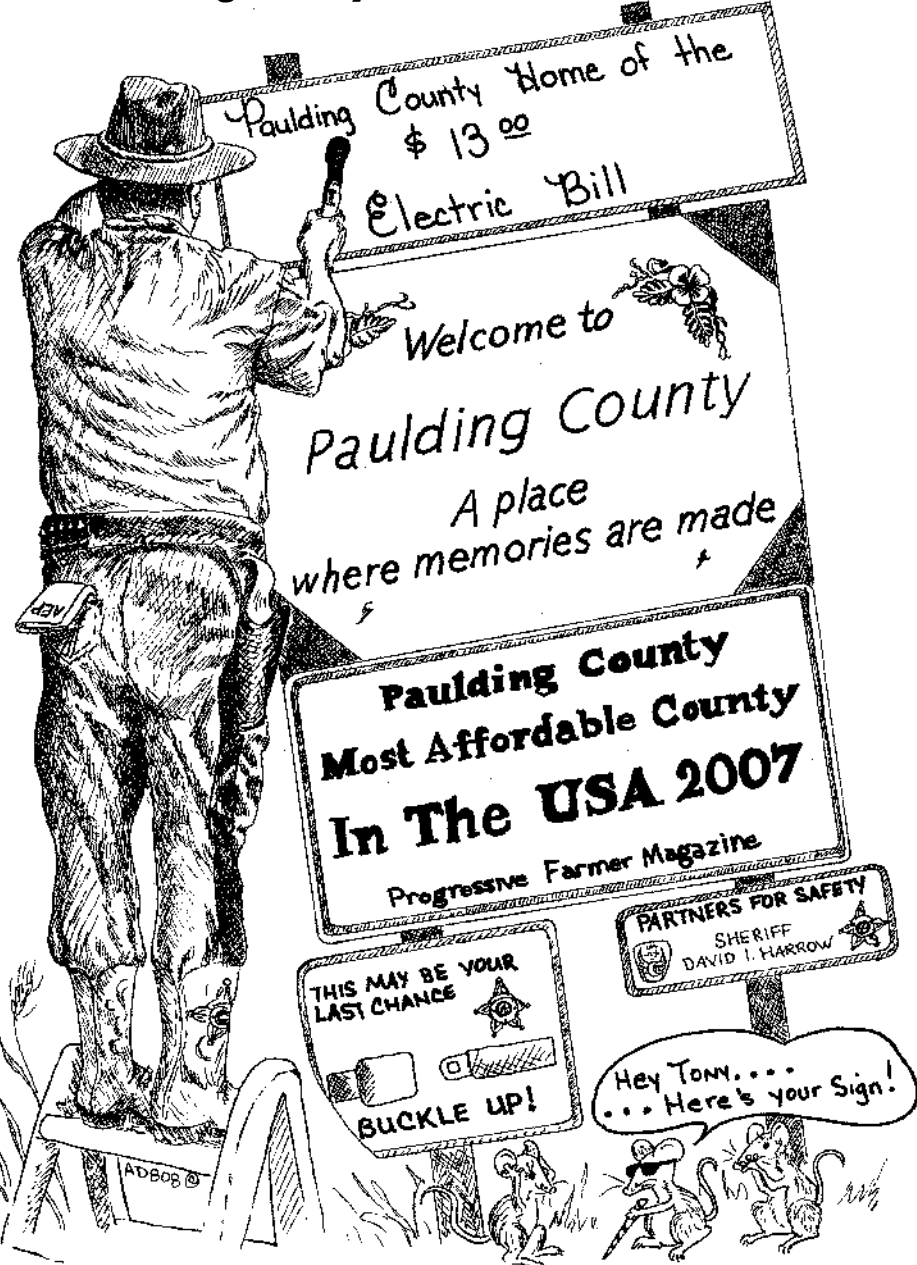 Paulding County Home of the
$ 13 00
Electric Bill
Welcome to
Paulding County
A place
where memories are made
AEP
Paulding County
Most Affordable County
In The USA 2007
Progressive Farmer Magazine
PARTNERS FOR SAFETY
SHERIFF
DAVID I. HARROW
THIS MAY BE YOUR
LAST CHANCE
BUCKLE UP!
Hey Tony....
... Here's your Sign!
ADBOB ©